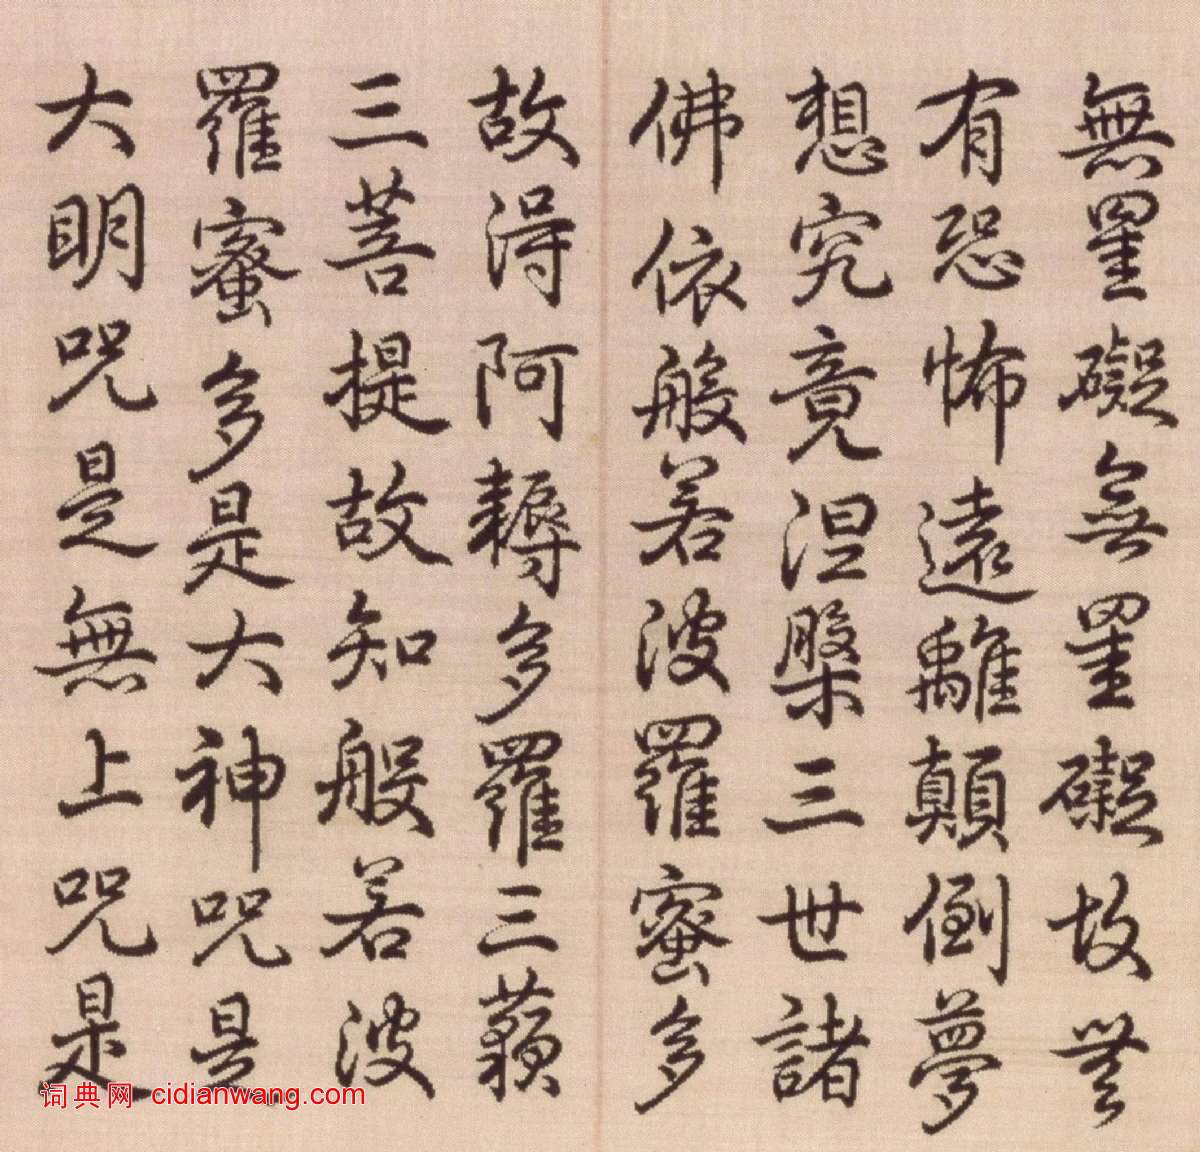 無罣礙無罣礙故無
有恐怖遠離顛倒夢
想究竟涅槃三世諸
佛依般若波羅蜜多
故得阿耨多羅三藐
三菩提故知般若波
羅蜜多是大神咒是
大明咒是無上咒是
词典网 cidianwang.com